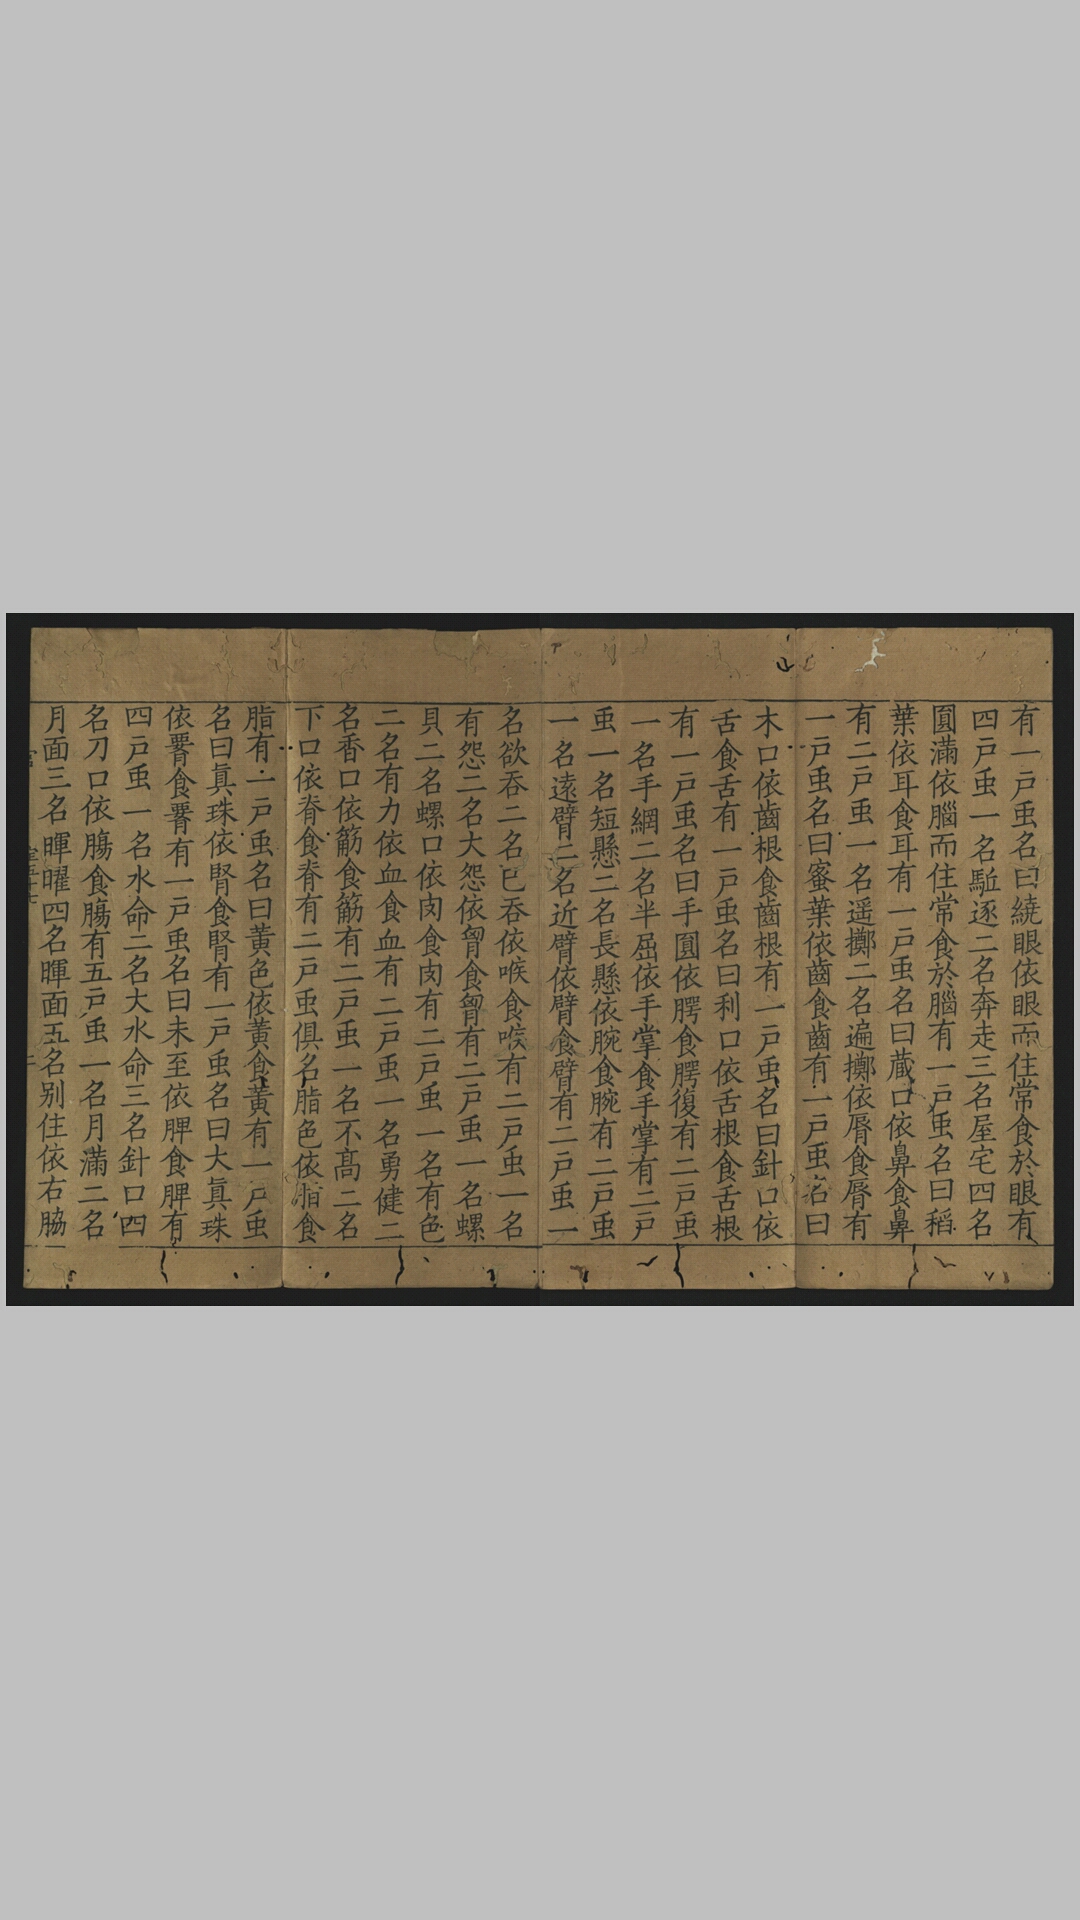 有一戸䖝名曰繞眼依眼而住常食於眼有
四戸䖝一名駈逐二名奔走三名屋宅四名
圓滿依腦而住常食於腦有一戸䖝名曰稻
葉依耳食耳有一戸䖝名曰蔵口依鼻食鼻
有二戸䖝一名遥擲二名遍擲依脣食脣有
一戸䖝名曰蜜葉依齒食齒有一戸䖝名曰
木口依齒根食齒根有一戸䖝名曰針口依
舌食舌有一戸䖝名曰利口依舌根食舌根
有一戸䖝名曰手圓依腭食腭復有二戸䖝
一名手網二名半屈依手掌食手掌有二戸
䖝一名短懸二名長懸依腕食腕有二戸䖝
一名遠臂二名近臂依臂食臂有二戸䖝一
名欲吞二名已吞依喉食喉有二戸䖝一名
有怨二名大怨依胷食胷有二戸䖝一名螺
貝二名螺口依肉食肉有二戸䖝一名有色
二名有力依血食血有二戸䖝一名勇健二
名香口依筋食筋有二戸䖝一名不髙二名
下口依脊食脊有二戸䖝俱名脂色依脂食
脂有一戸䖝名曰黄色依黄食黄有一戸䖝
名曰真珠依腎食腎有一戸䖝名曰大真珠
依食有一戸䖝名曰未至依脾食脾有
四戸䖝一名水命二名大水命三名針口四
名刀口依膓食膓有五戸䖝一名月滿二名
月面三名暉曜四名暉面五名别住依右脇